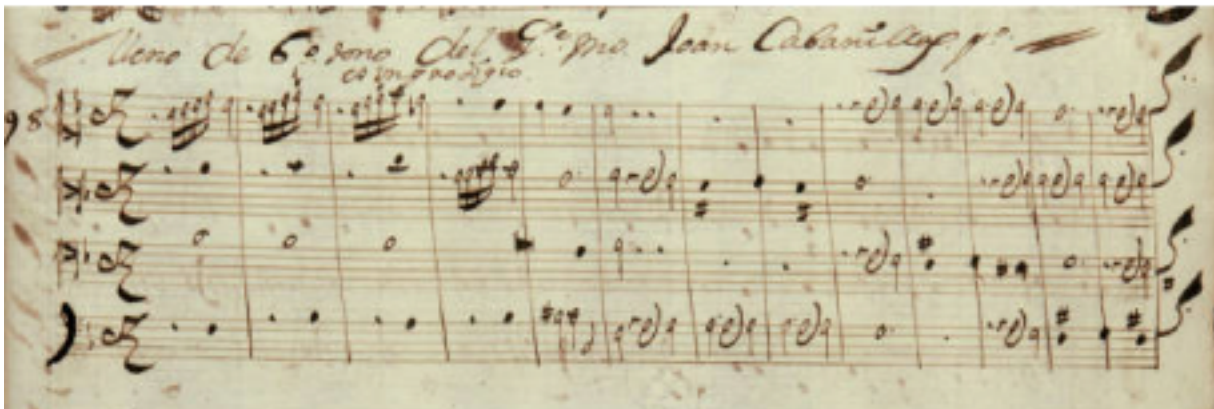 lleno de 6º tono del Rdo mo. Joan Cabanilles pº.
es un prodigio
98